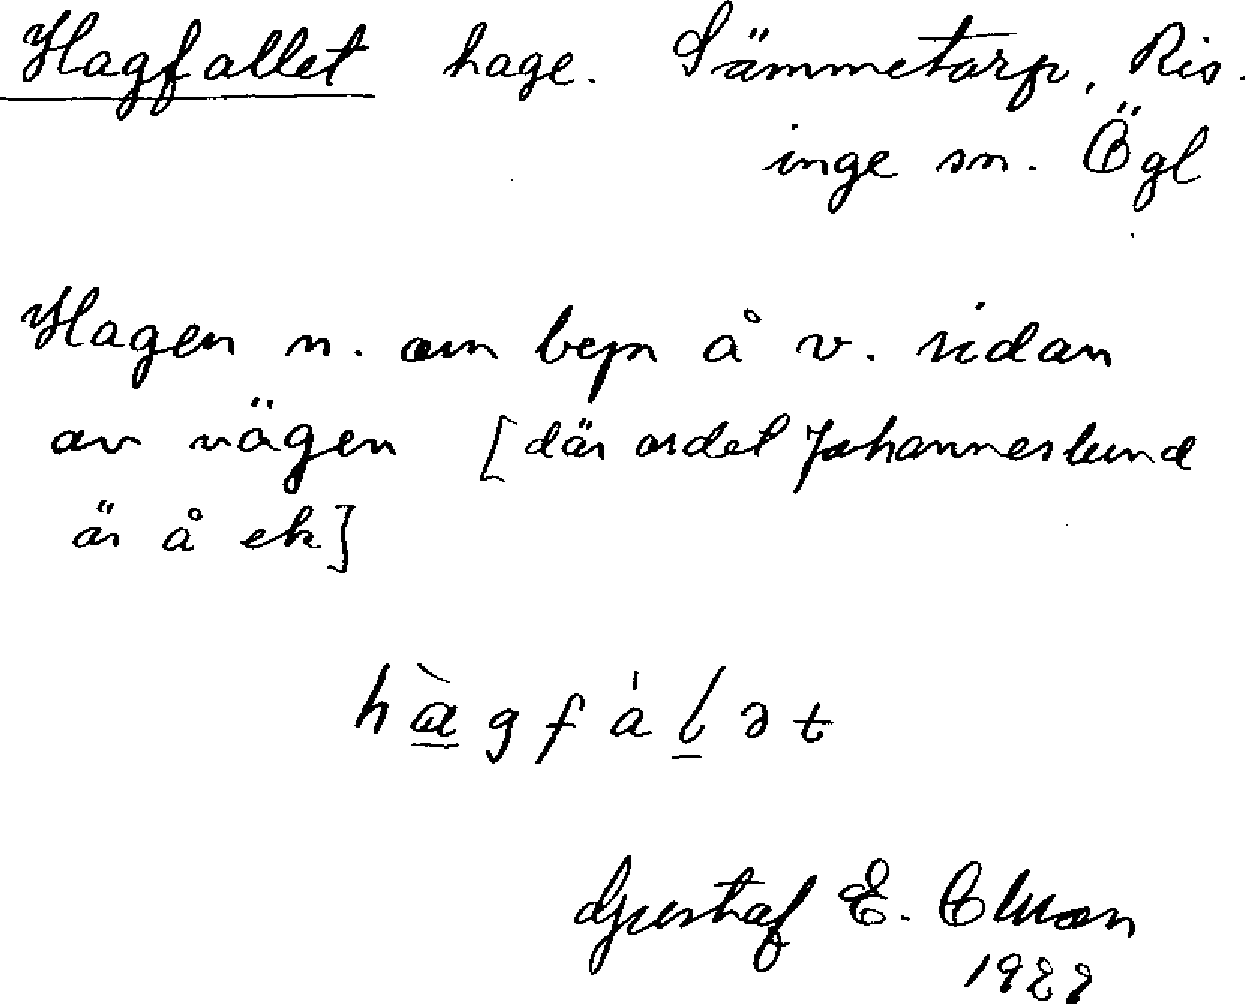 Hagfallet hage. Sämmetorp, Ris-
inge sn. Ögl
Hagen n. om byn å v. sidan
av vägen [där ordet Johanneslund
är å ek]
hàgfálət
Gustaf E.
1922